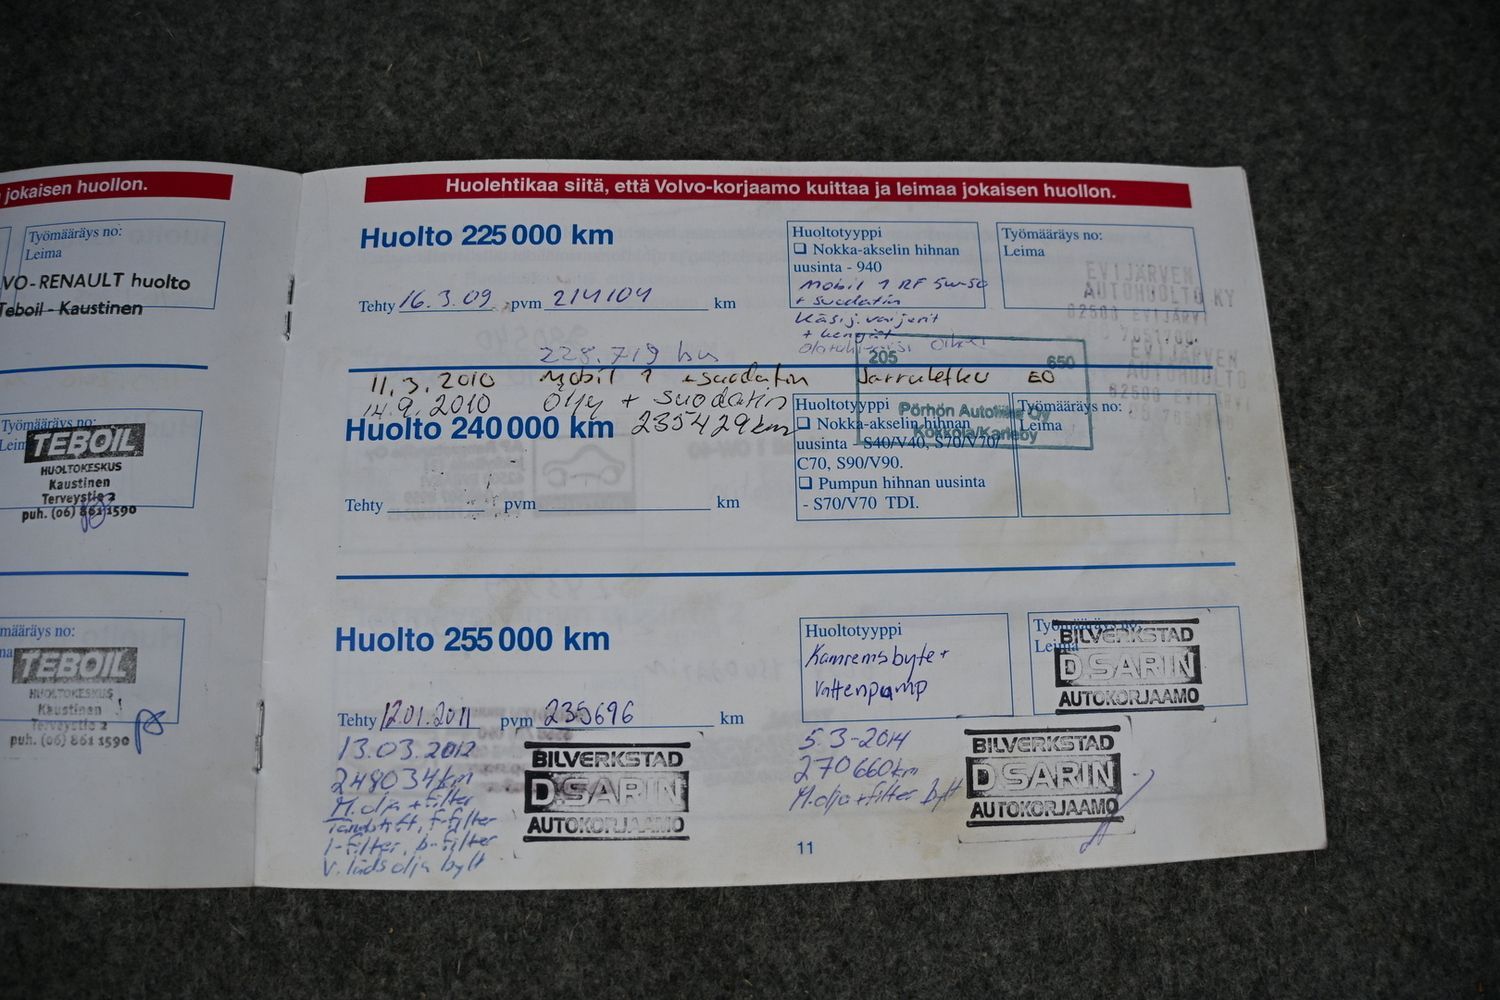 jokaisen huollon.
Työmääräys no:
Leima
VO-RENAULT huolto
Teboil - Kaustinen
Työmääräys no:
TEBOIL
HUOLTOKESKUS
Kaustinen
Terveystie 2
puh. (06) 861 1590
määräys no:
TEBOIL
HUOLTOKESKUS
Kaustinen
Terveystie 2
puh. (06) 861 1590
Huolehtikaa siitä, että Volvo-korjaamo kuittaa ja leimaa jokaisen huollon.
Huolto 225 000 km
Tehty 16.3.09 pvm 214104 km
Huoltotyyppi
❑ Nokka-akselin hihnan
uusinta - 940
Mobil 1 RF 5w-50
+ suodatin
Käsij. vaijerit
+ kengät
Työmääräys no:
Leima
EVIJÄRVEN
AUTOHUOLTO KY
62500 EVIJÄRVI
EVIJÄRVEN
AUTOHUOLTO
62500 EVIJÄRVI
228.719 km
11.3.2010 Mobil 1 + suodatin Jarruletku EO
14.9.2010 Öljy + suodatin
235429km
205 650
Pörhön Autoliike Oy
Kokkola/Karleby
Huolto 240 000 km
Tehty pvm km
Huoltotyyppi
❑ Nokka-akselin hihnan
uusinta - S40/V40, S70/V70/
C70, S90/V90.
❑ Pumpun hihnan uusinta
- S70/V70 TDI.
Työmääräys no:
Leima
Huolto 255 000 km
Tehty 12.01.2011 pvm 235696 km
Huoltotyyppi
Kamremsbyte +
Vattenpump
Työmääräys no:
Leima
BILVERKSTAD
D.SARIN
AUTOKORJAAMO
13.03.2012
248034km
M.olja + filter
Tändstift, f-filter
l-filter, b-filter
olja bytt
BILVERKSTAD
D.SARIN
AUTOKORJAAMO
5.3-2014
270660km
M.olja + filter bytt
BILVERKSTAD
D.SARIN
AUTOKORJAAMO
11